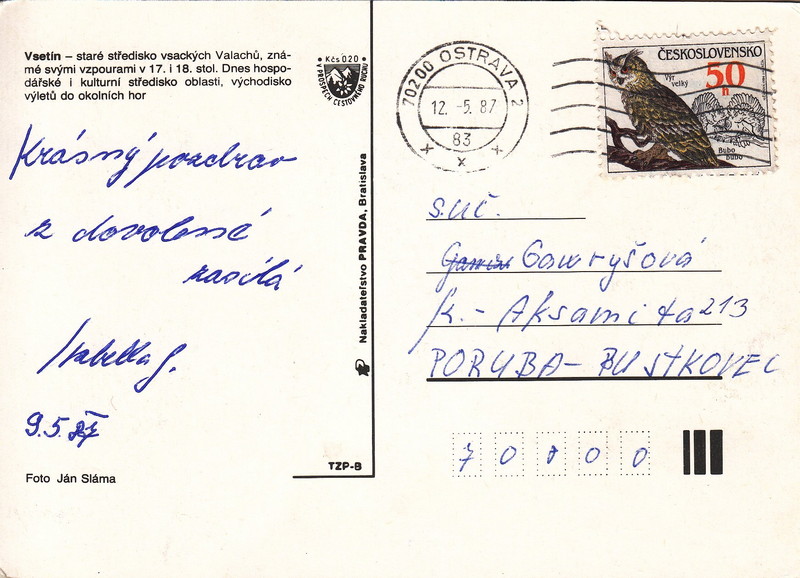 Vsetín – staré středisko vsackých Valachů, zná-
mé svými vzpourami v 17. i 18. stol. Dnes hospo-
dářské i kulturní středisko oblasti, východisko
výletů do okolních hor
Kčs 020
V PROSPĚCH CESTOVNÉHO RUCHU
Krásný pozdrav
z dovolené
zasílá
Isabella G.
9.5.87
Foto Ján Sláma
Nakladateľstvo PRAVDA, Bratislava
TZP-B
70200 OSTRAVA 2
12. -5. 87
83
ČESKOSLOVENSKO
50
h
Výr
velký
Bubo
Bubo
s. uč.
Gawryšová
K. - Aksamita 213
PORUBA - PUSTKOVEC
70800